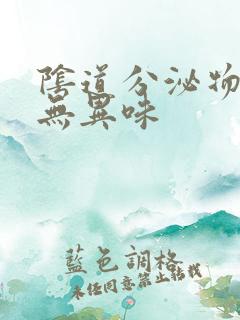 陰道分泌物
無異味
藍色調格
未经同意禁止转载